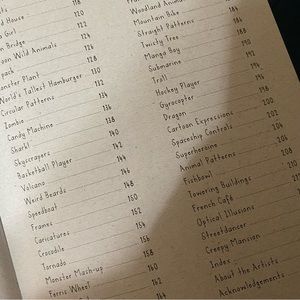 118
d House 120
Girl 122
n Bridge 124
oon Wild Animals 126
pack 128
onster Plant 130
World's Tallest Hamburger 132
Circular Patterns 134
Zombie 136
Candy Machine 138
Shark! 140
Skyscrapers 142
Basketball Player 144
Volcano 146
Weird Beards 148
Speedboat 150
Frames 152
Caricatures 154
Crocodile 156
Tornado 158
Monster Mash-up 160
Ferris Wheel 162
164
Woodland Animals
Mountain Bike 184
Straight Patterns 186
Twisty Tree 188
Mango Boy 190
Submarine 192
Troll 194
Hockey Player 196
Gyrocopter 198
Dragon 200
Cartoon Expressions 202
Spaceship Controls 204
Superheroine 206
Animal Patterns 208
Fishbowl 210
Towering Buildings
French Café
Optical Illusions
Streetdancer
Creepy Mansion
Index
About the Artists
Acknowledgements